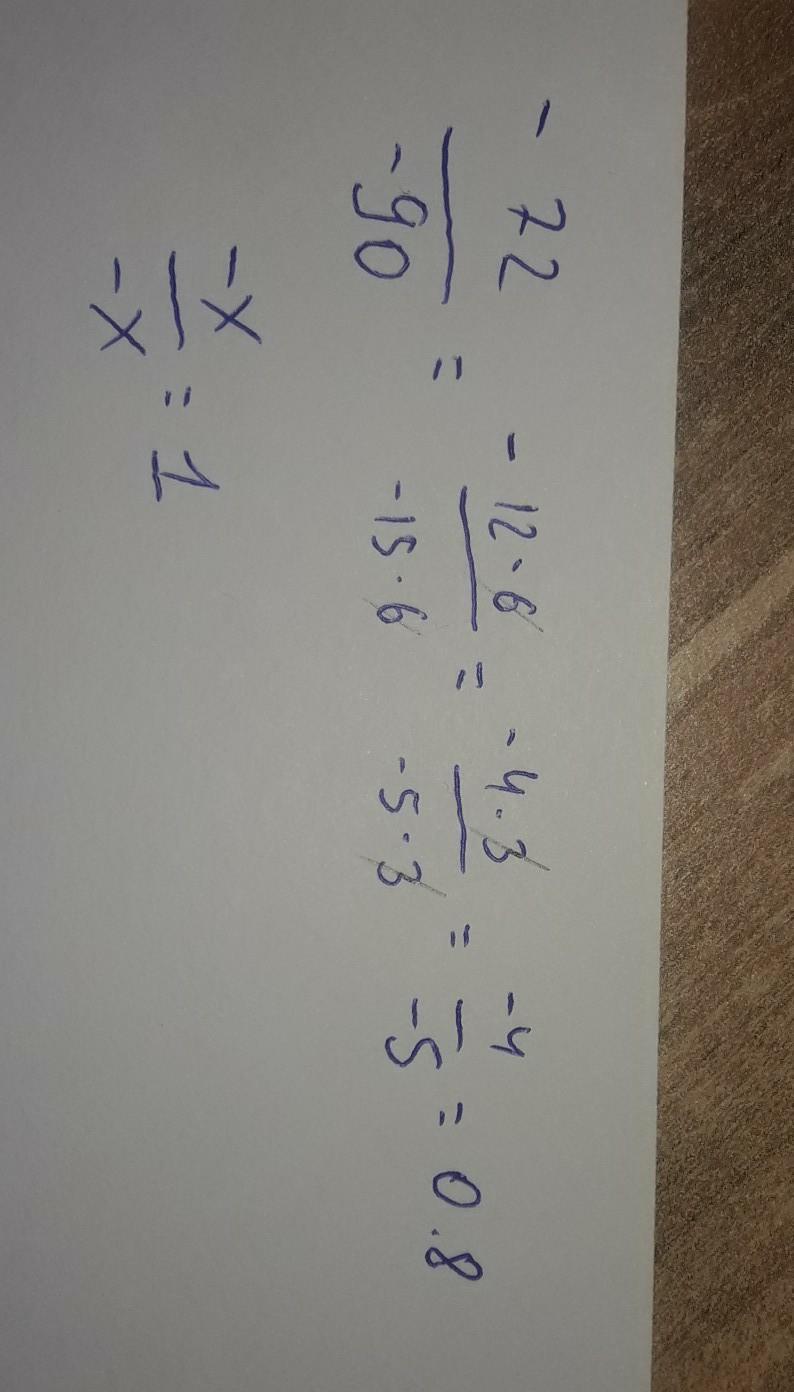 -72/-90 = -12·6/-15·6 = -4·3/-5·3 = -4/-5 = 0.8
-x/-x = 1